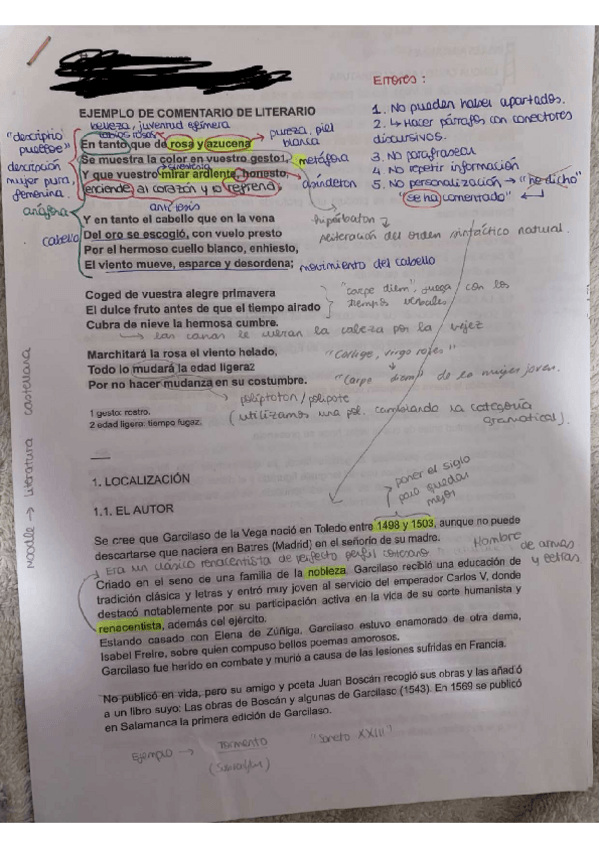 Errores:
1. No pueden haber apartados.
2. ↳ Hacer párrafos con conectores discursivos.
3. No parafrasear
4. No repetir información
5. No personalización → "he dicho"
"se ha comentado" ←
EJEMPLO DE COMENTARIO DE LITERARIO
belleza, juventud efímera
labios rosas
"descriptio puellae"
descripción mujer pura, femenina.
En tanto que de rosa y azucena → pureza, piel blanca
Se muestra la color en vuestro gesto1, metáfora
Y que vuestro mirar ardiente, honesto,
enciende al corazón y lo refrena, asíndeton
anáfora
antítesis
Y en tanto el cabello que en la vena
→ hipérbaton
cabello
Del oro se escogió, con vuelo presto
alteración del orden sintáctico natural.
Por el hermoso cuello blanco, enhiesto,
El viento mueve, esparce y desordena; movimiento del cabello
Coged de vuestra alegre primavera
El dulce fruto antes de que el tiempo airado
"carpe diem", juega con los tiempos verbales
Cubra de nieve la hermosa cumbre.
↳ las canas le llenan la cabeza por la vejez
Marchitará la rosa el viento helado, "Collige, virgo roses"
Todo lo mudará la edad ligera2
Por no hacer mudanza en su costumbre. "Carpe diem" de la mujer joven.
→ políptoton / polípote
(utilizamos una pal. cambiando la categoría gramatical).
1 gusto: rostro.
2 edad ligera: tiempo fugaz.
Moodle → Literatura castellana
1. LOCALIZACIÓN
1.1. EL AUTOR
→ poner el siglo para quedar mejor
Se cree que Garcilaso de la Vega nació en Toledo entre 1498 y 1503, aunque no puede
descartarse que naciera en Batres (Madrid) en el señorío de su madre.
→ Era un clásico renacentista de perfecto perfil cortesano
Hombre de armas y letras
Criado en el seno de una familia de la nobleza, Garcilaso recibió una educación de
tradición clásica y letras y entró muy joven al servicio del emperador Carlos V, donde
destacó notablemente por su participación activa en la vida de su corte humanista y
renacentista, además del ejército.
Estando casado con Elena de Zúñiga, Garcilaso estuvo enamorado de otra dama,
Isabel Freire, sobre quien compuso bellos poemas amorosos.
Garcilaso fue herido en combate y murió a causa de las lesiones sufridas en Francia.
No publicó en vida, pero su amigo y poeta Juan Boscán recogió sus obras y las añadió
a un libro suyo: Las obras de Boscán y algunas de Garcilaso (1543). En 1569 se publicó
en Salamanca la primera edición de Garcilaso.
Ejemplo → "Soneto XXIII"